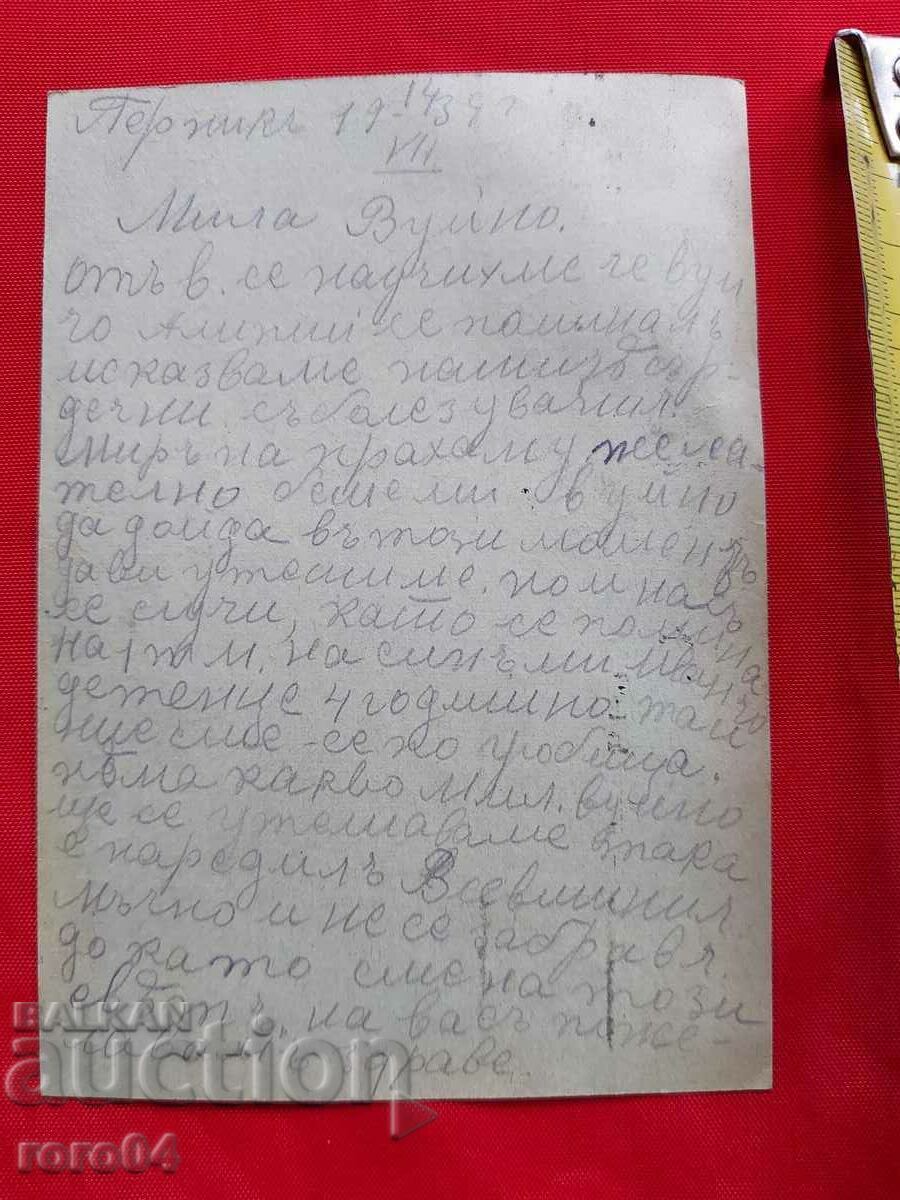 Перникъ 19 14/VIII 39 г
Мила Вуйно.
отъ в. се научихме че вуй
чо се поминалъ
исказваме нашитѣ сър-
дечни съболезувания.
миръ на праха му жела-
телно беше ми вуйно
да дойда въ този моментъ
да ви утешиме. пом насъ
се случи, като се помина
на 1 т.м. на синъ ми Иванчо
детенце 4 годишно
още сме се по гробища.
нема какво мил. вуйно
ще се утешаваме така
е наредилъ Всевишния
мъчно и не се забравя.
до като сме на този
свѣтъ, на васъ поже-
лаваме здраве.
BALKAN
auction
roro04